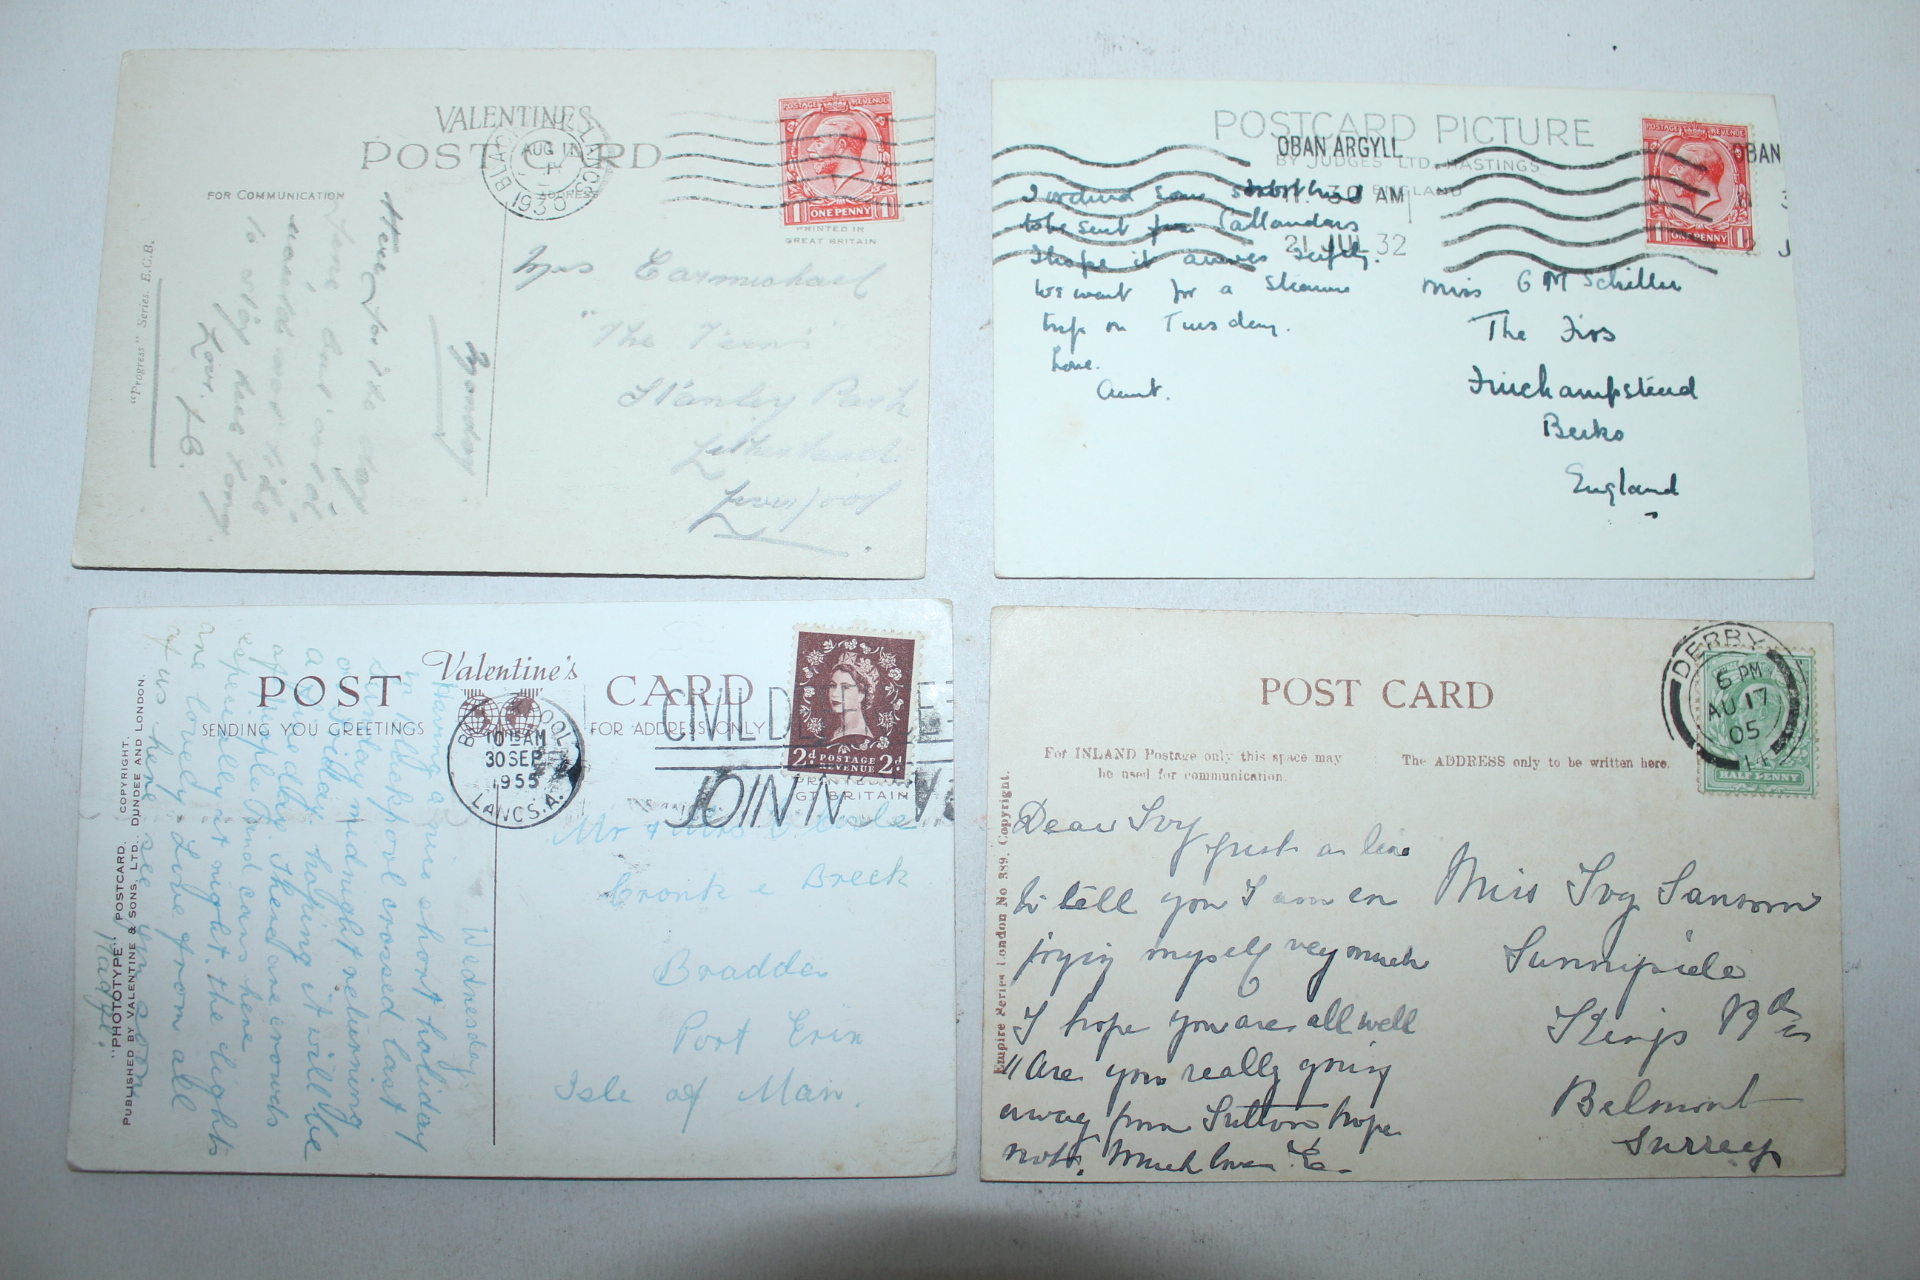 VALENTINES
POST CARD
FOR COMMUNICATION
ADDRESS
AUG
1930
POSTAGE REVENUE
1 ONE PENNY 1
PRINTED IN
GREAT BRITAIN
"Progress" Series. E.G.B.
Monday
Here for the day
Fine but cold
would like
to stay here long.
Love.
Mrs Carmichael
"The Ferns"
Stanley Park
Litherland
Liverpool
POSTCARD PICTURE
BY JUDGES LTD HASTINGS
ENGLAND
OBAN ARGYLL
30 AM
21 JUL 32
OBAN
POSTAGE REVENUE
1 ONE PENNY 1
I ordered some
to be sent from Callanders
I hope it arrives safely.
We went for a steamer
trip on Tuesday.
Love.
Aunt.
Miss G M Schiller
The Firs
Finchampstead
Berks
England
Valentine's
POST CARD
SENDING YOU GREETINGS
FOR ADDRESS ONLY
10 15 AM
30 SEP
1955
LANCS. A.
CIVIL DE
JOIN N W
2d POSTAGE REVENUE 2d
GT BRITAIN
"PHOTOTYPE" POSTCARD. COPYRIGHT.
PUBLISHED BY VALENTINE & SONS, LTD. DUNDEE AND LONDON.
Wednesday.
Having a nice short holiday
in Blackpool crossed last
Sunday midnight returning
on Friday hoping it will be
a fine day. There are crowds
of people and cars here
especially at night. the lights
are lovely. Love from all
of us here
Madge.
Mr & Mrs
Cronk e Breck
Bradda
Port Erin
Isle of Man.
POST CARD
For INLAND Postage only this space may
be used for communication.
The ADDRESS only to be written here.
DERBY
6 PM
AU 17
05
14
HALF PENNY
Empire Series London No 889. Copyright.
Dear Ivy
just a line
to tell you I am en
joying myself very much
I hope you are all well
Are you really going
away from Sutton hope
not. Much love E.
Miss Ivy Sansom
Sunnyside
Kings Rd
Belmont
Surrey